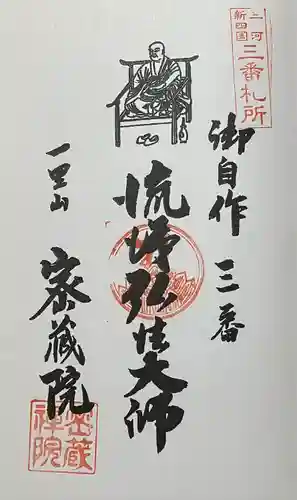 三河
新四国
三番札所
御自作 三番
流涕弘法大師
一里山
密蔵院
密蔵
禅院